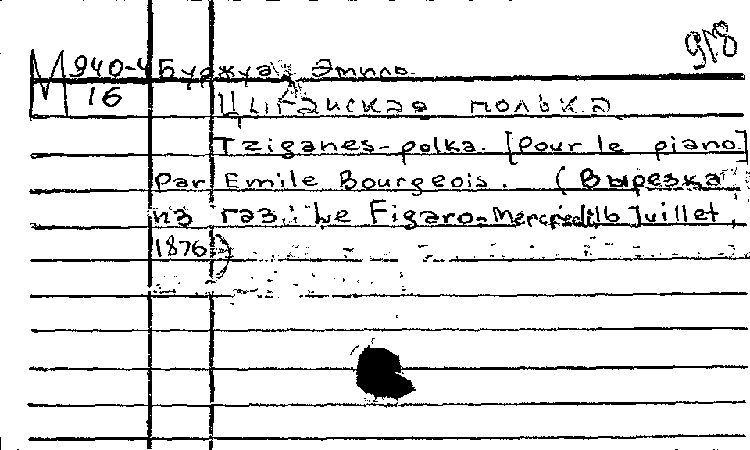 918
М 940-4 Буржуа, Эмиль.
16 Цыганская полька
Tziganes-polka. [Pour le piano]
Par Emile Bourgeois. (Вырезка
из газ.: Le Figaro. Mercredi 16 Juillet,
1876)